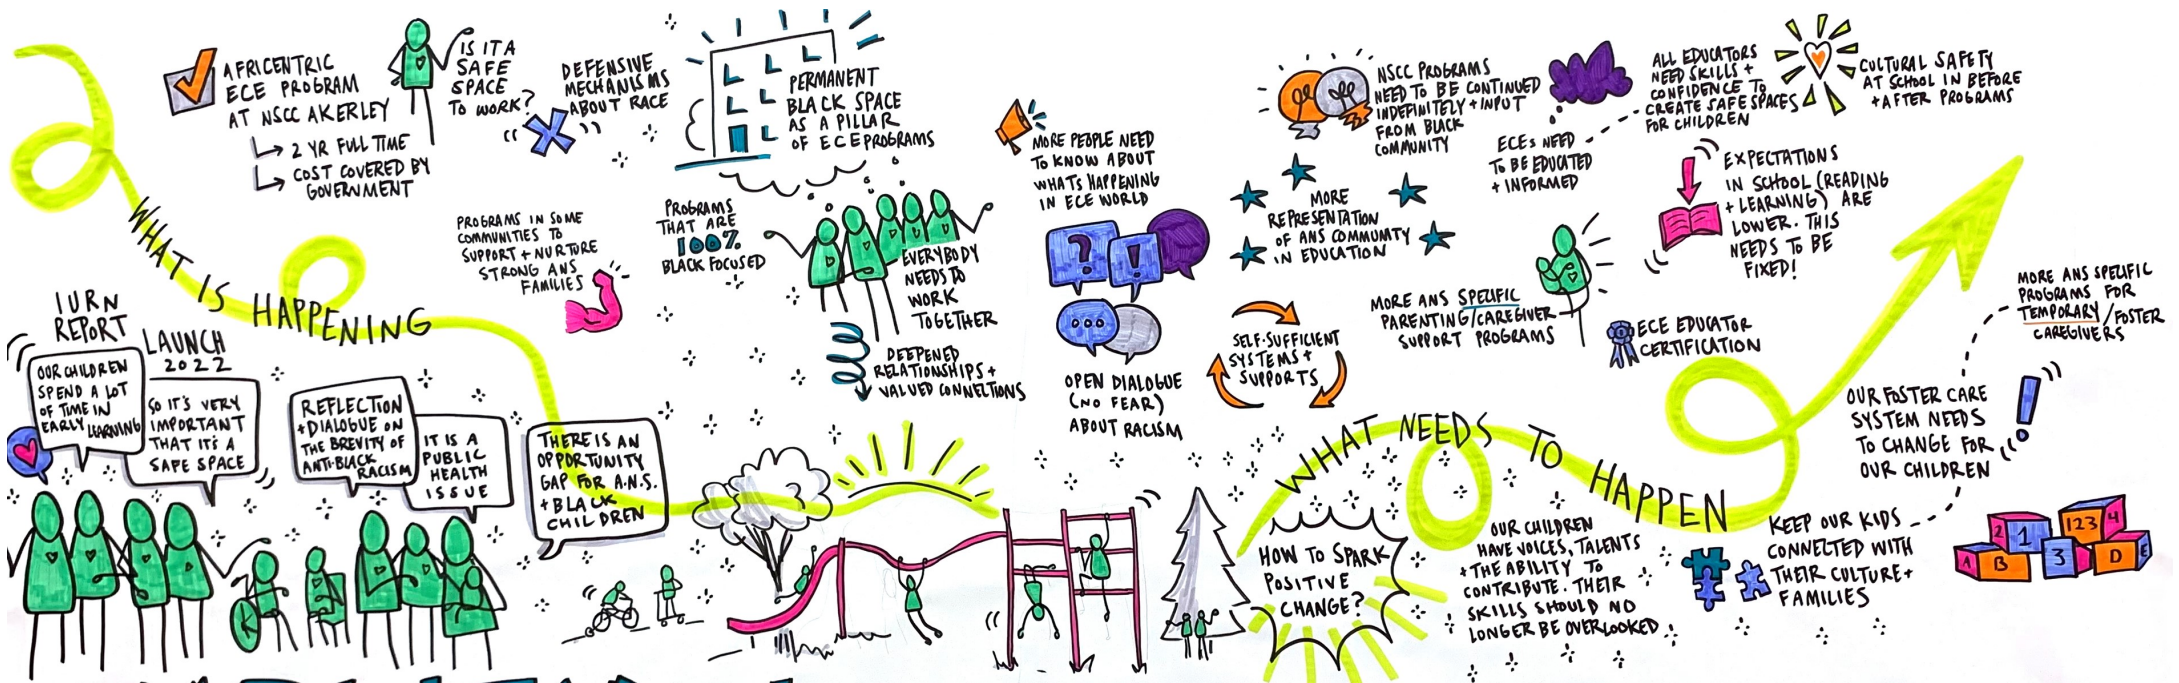 AFRICENTRIC
ECE PROGRAM
AT NSCC AKERLEY
2 YR FULL TIME
COST COVERED BY
GOVERNMENT
IS IT A
SAFE
SPACE
TO WORK?
DEFENSIVE
MECHANISMS
ABOUT RACE
PERMANENT
BLACK SPACE
AS A PILLAR
OF ECE PROGRAMS
WHAT IS HAPPENING
PROGRAMS IN SOME
COMMUNITIES TO
SUPPORT + NURTURE
STRONG ANS
FAMILIES
PROGRAMS
THAT ARE
100%
BLACK FOCUSED
EVERYBODY
NEEDS TO
WORK
TOGETHER
DEEPENED
RELATIONSHIPS +
VALUED CONNECTIONS
IURN
REPORT
LAUNCH
2022
OUR CHILDREN
SPEND A LOT
OF TIME IN
EARLY LEARNING
SO IT'S VERY
IMPORTANT
THAT IT'S A
SAFE SPACE
REFLECTION
+ DIALOGUE ON
THE BREVITY OF
ANTI-BLACK
RACISM
IT IS A
PUBLIC
HEALTH
ISSUE
THERE IS AN
OPPORTUNITY
GAP FOR A.N.S.
+ BLACK
CHILDREN
MORE PEOPLE NEED
TO KNOW ABOUT
WHATS HAPPENING
IN ECE WORLD
?
!
OPEN DIALOGUE
(NO FEAR)
ABOUT RACISM
NSCC PROGRAMS
NEED TO BE CONTINUED
INDEFINITELY + INPUT
FROM BLACK
COMMUNITY
MORE
REPRESENTATION
OF ANS COMMUNITY
IN EDUCATION
SELF-SUFFICIENT
SYSTEMS +
SUPPORTS
ECEs NEED
TO BE EDUCATED
+ INFORMED
ALL EDUCATORS
NEED SKILLS +
CONFIDENCE TO
CREATE SAFE SPACES
FOR CHILDREN
CULTURAL SAFETY
AT SCHOOL IN BEFORE
+ AFTER PROGRAMS
EXPECTATIONS
IN SCHOOL (READING
+ LEARNING) ARE
LOWER. THIS
NEEDS TO BE
FIXED!
MORE ANS SPECIFIC
PARENTING/CAREGIVER
SUPPORT PROGRAMS
ECE EDUCATOR
CERTIFICATION
MORE ANS SPECIFIC
PROGRAMS FOR
TEMPORARY/FOSTER
CAREGIVERS
OUR FOSTER CARE
SYSTEM NEEDS
TO CHANGE FOR
OUR CHILDREN
!
WHAT NEEDS TO HAPPEN
HOW TO SPARK
POSITIVE
CHANGE?
OUR CHILDREN
HAVE VOICES, TALENTS
+ THE ABILITY TO
CONTRIBUTE. THEIR
SKILLS SHOULD NO
LONGER BE OVERLOOKED
KEEP OUR KIDS
CONNECTED WITH
THEIR CULTURE +
FAMILIES
2 1 123 4
A B 3 D E